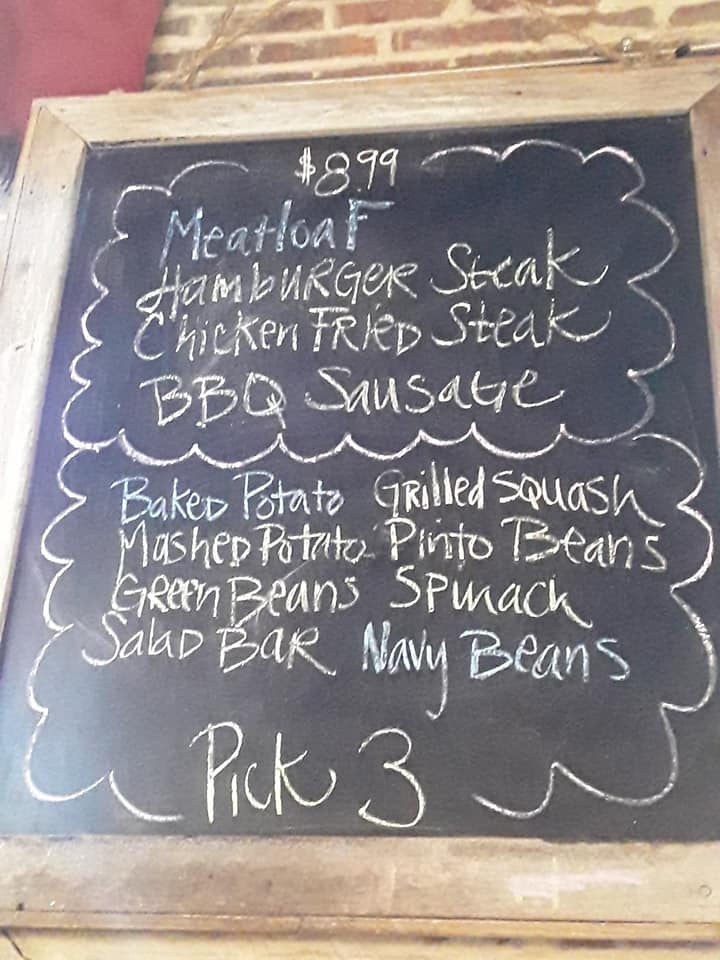 $8.99
MeatloaF
HambURGeR Steak
Chicken FRieD Steak
BBQ SausaGe
BakeD Potato GRilled SQUASh
MasheD Potato Pinto Beans
GReen Beans SPinach
SalaD BaR Navy Beans
Pick 3